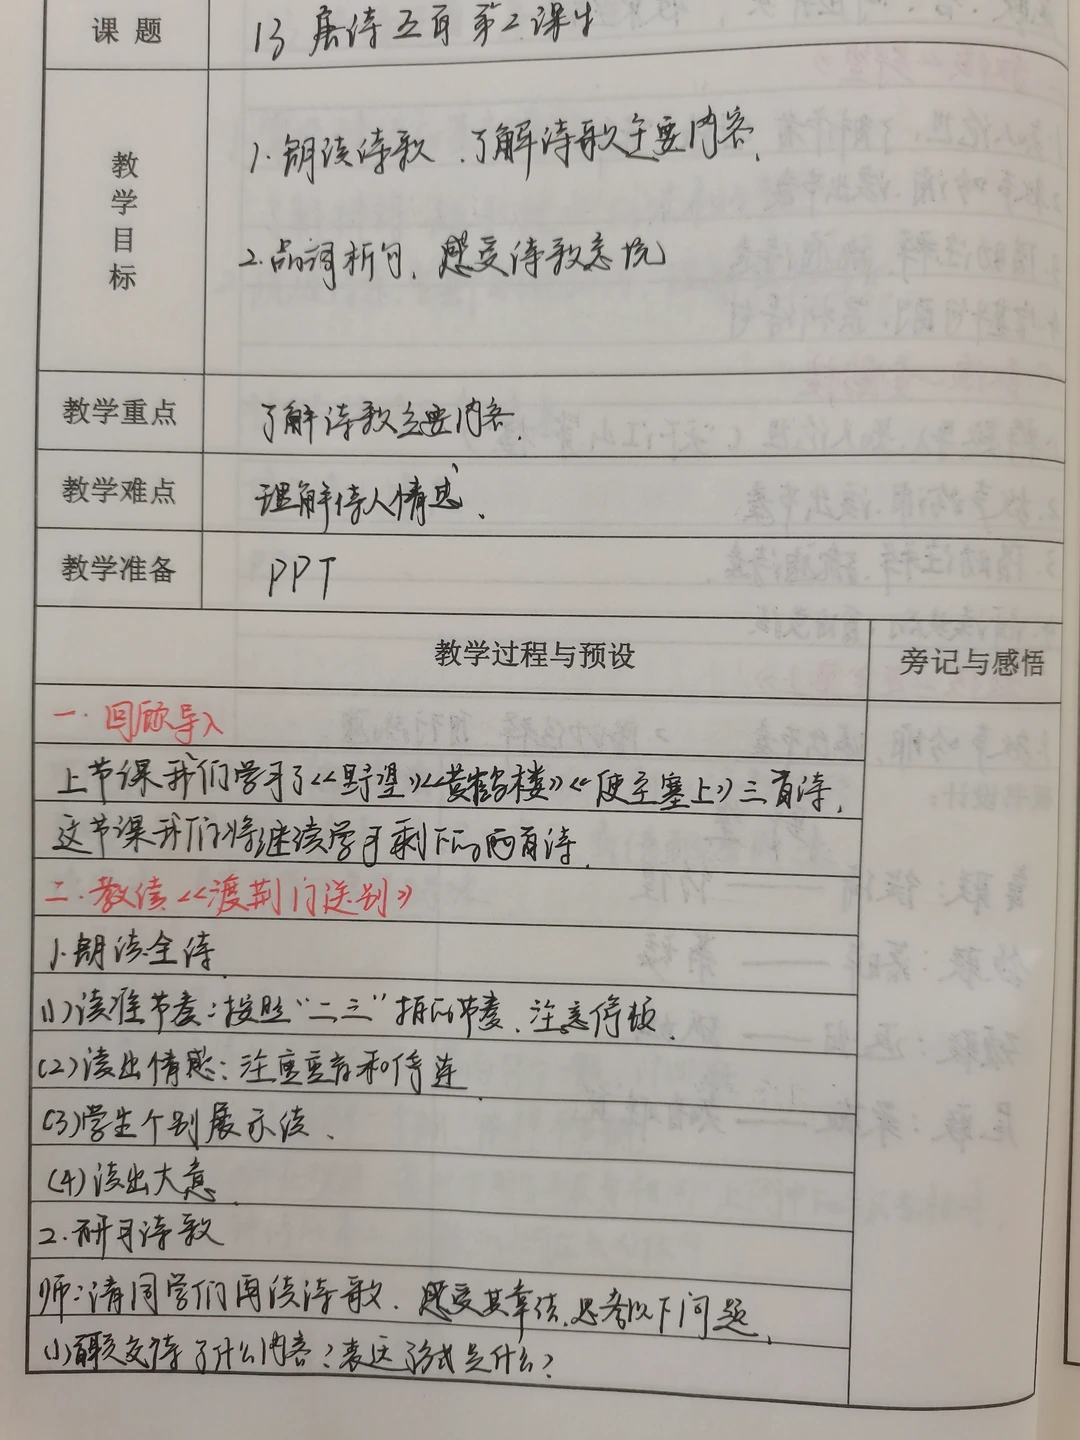 课题
13 唐诗五首 第2课时
教学目标
1. 朗读诗歌、了解诗歌主要内容、
2. 品词析句、感受诗歌意境
教学重点
了解诗歌主要内容、
教学难点
理解诗人情感、
教学准备
PPT
教学过程与预设
旁记与感悟
一. 回顾导入
上节课我们学习了《野望》《黄鹤楼》《使至塞上》三首诗,
这节课我们将继续学习剩下的两首诗、
二. 教读《渡荆门送别》
1. 朗读全诗、
(1)读准节奏:按照“二三”拍的节奏、注意停顿、
(2)读出情感:注重重音和停连、
(3)学生个别展示读、
(4)读出大意、
2. 研习诗歌
师:请同学们再读诗歌、感受其章法,思考以下问题、
(1)首联交待了什么内容?表达方式是什么?